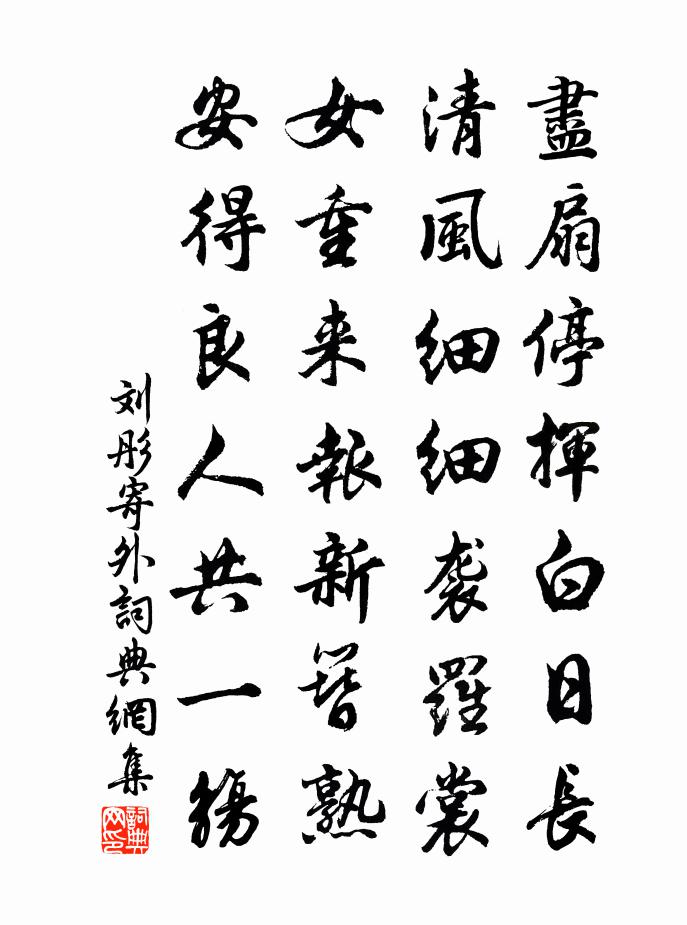 盡扇停揮白日長
清風細細袭羅裳
女重来報新簪熟
安得良人共一觴
刘彤寄外詞典網集
詞典网印